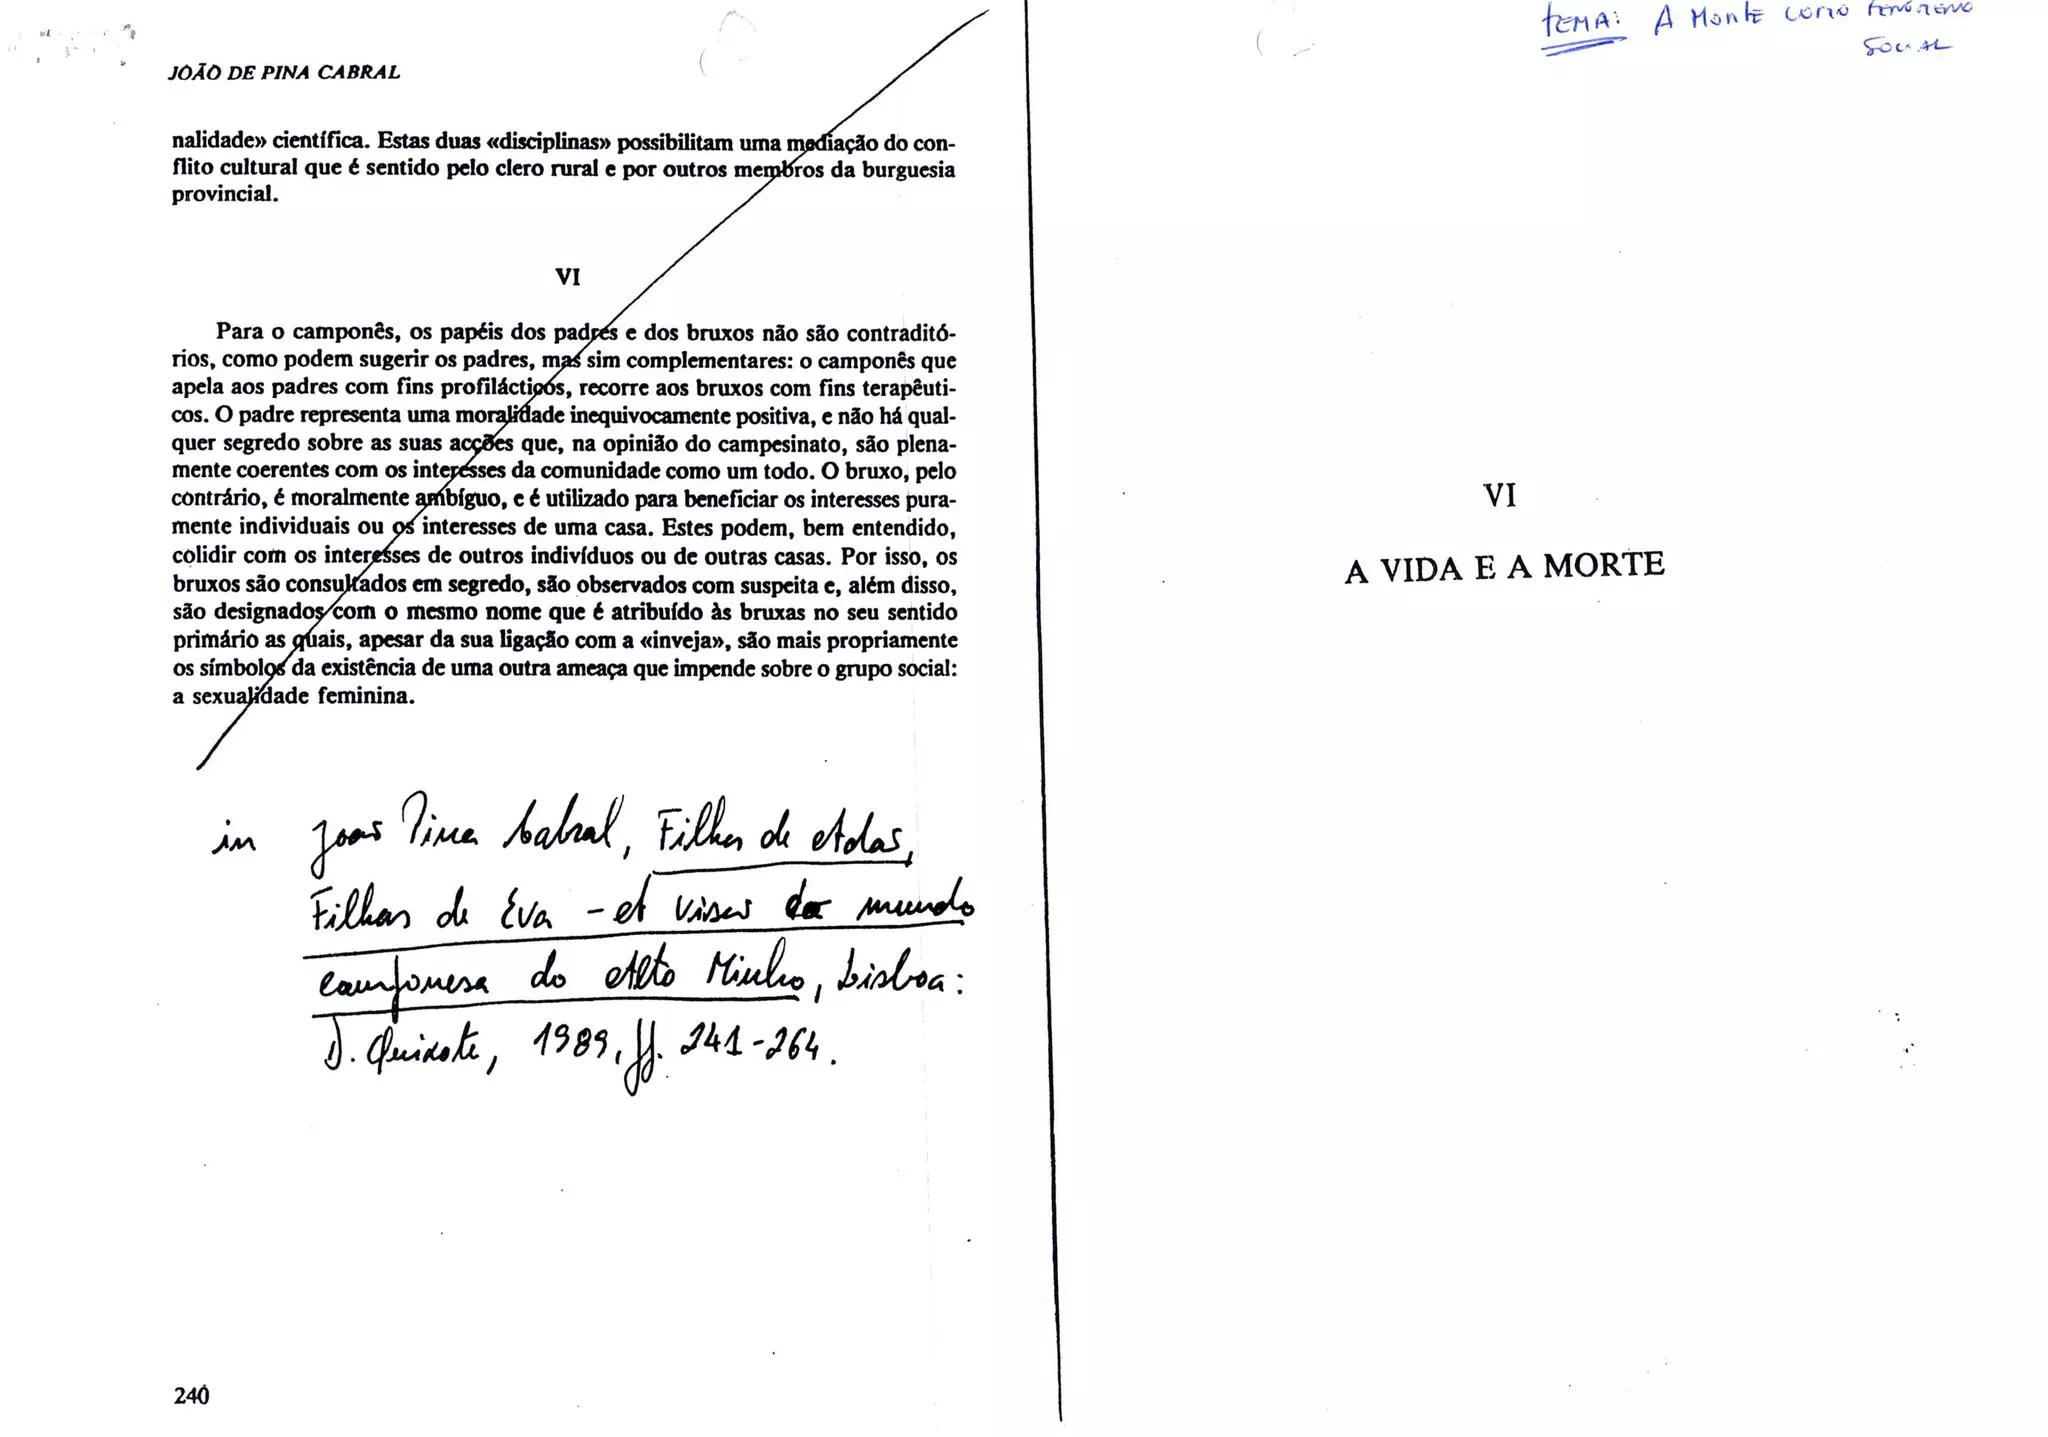 JOÃO DE PINA CABRAL
nalidade» científica. Estas duas «disciplinas» possibilitam uma mediação do con-
flito cultural que é sentido pelo clero rural e por outros membros da burguesia
provincial.
VI
Para o camponês, os papéis dos padres e dos bruxos não são contraditó-
rios, como podem sugerir os padres, mas sim complementares: o camponês que
apela aos padres com fins profilácticos, recorre aos bruxos com fins terapêuti-
cos. O padre representa uma moralidade inequivocamente positiva, e não há qual-
quer segredo sobre as suas acções que, na opinião do campesinato, são plena-
mente coerentes com os interesses da comunidade como um todo. O bruxo, pelo
contrário, é moralmente ambíguo, e é utilizado para beneficiar os interesses pura-
mente individuais ou os interesses de uma casa. Estes podem, bem entendido,
colidir com os interesses de outros indivíduos ou de outras casas. Por isso, os
bruxos são consultados em segredo, são observados com suspeita e, além disso,
são designados com o mesmo nome que é atribuído às bruxas no seu sentido
primário as quais, apesar da sua ligação com a «inveja», são mais propriamente
os símbolos da existência de uma outra ameaça que impende sobre o grupo social:
a sexualidade feminina.
in João Pina Cabral, Filhos de Adas,
Filhas de Eva - A visão do mundo
camponesa do Alto Minho, Lisboa:
D. Quixote, 1989, pp. 241-264.
240
TEMA: A Morte como fenómeno
social
VI
A VIDA E A MORTE